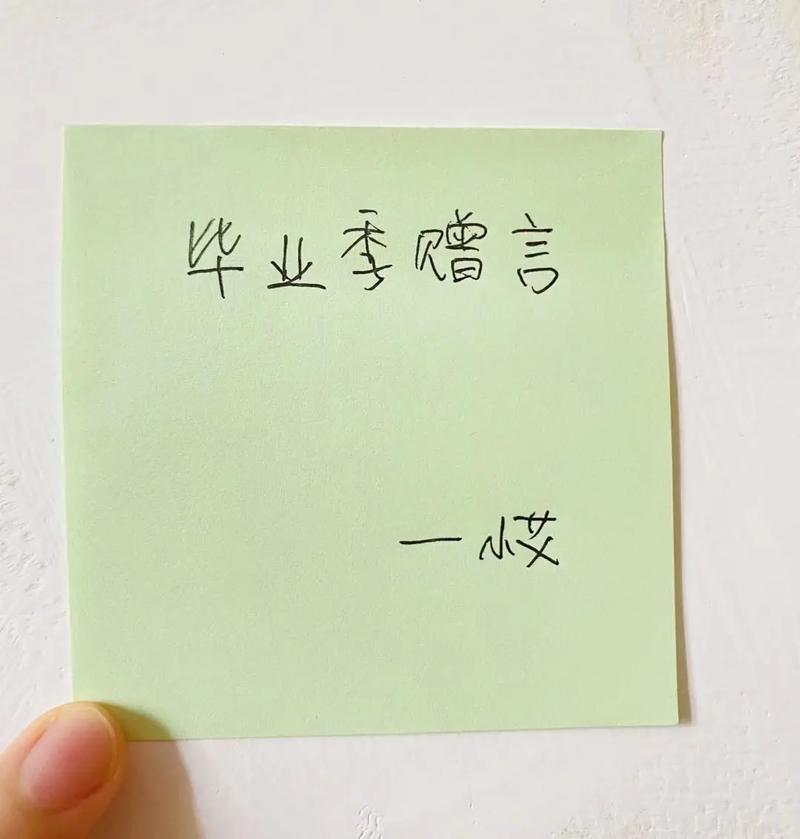 毕业季赠言
一小艾